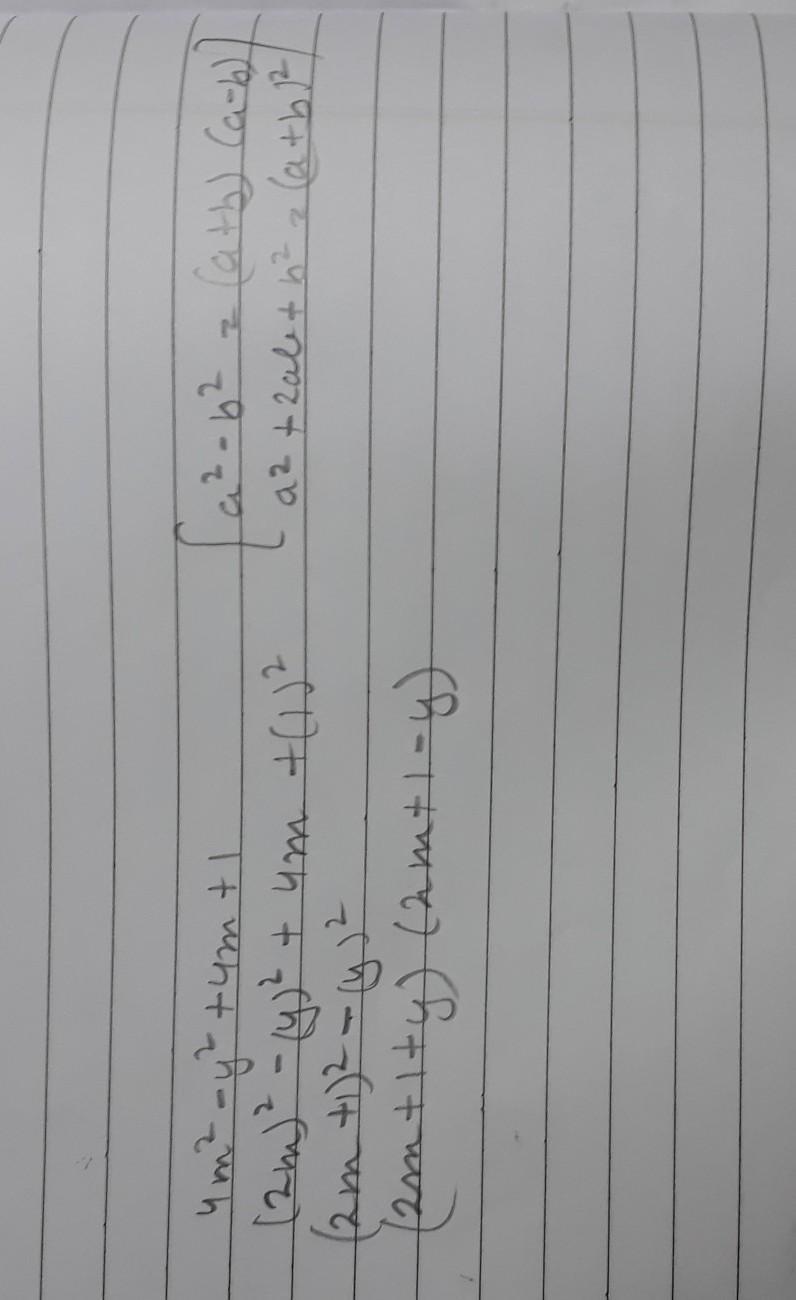 4m² - y² + 4m + 1
(2m)² - (y)² + 4m + (1)²
(2m + 1)² - (y)²
(2m + 1 + y) (2m + 1 - y)
[a² - b² = (a+b) (a-b)
a² + 2ab + b² = (a+b)²]